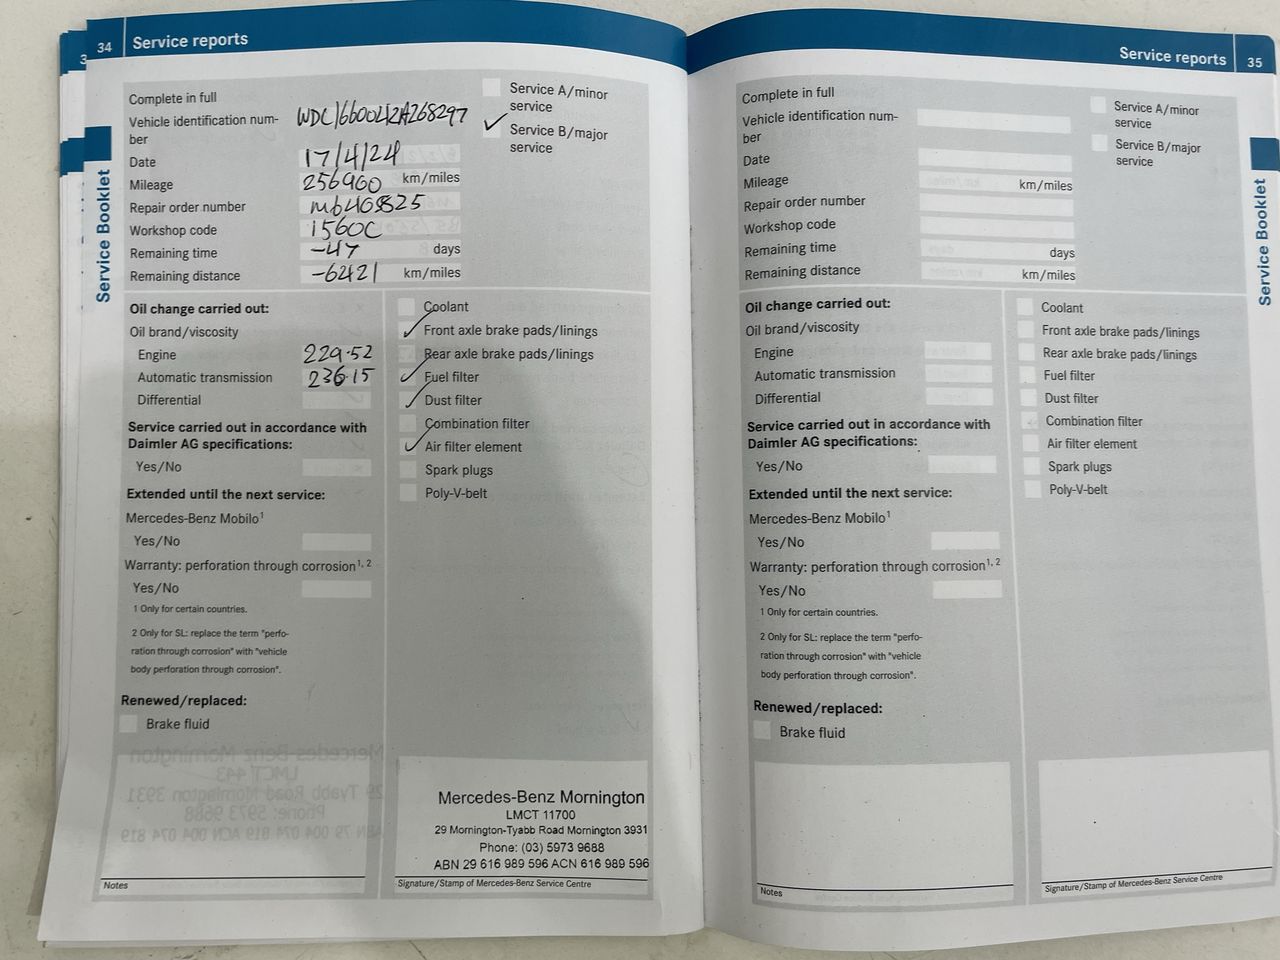 34 Service reports
Complete in full
Service A/minor
service
Vehicle identification num-
ber
WDC1660042A268297
Service B/major
service
Date 17/4/24
Mileage 256960 km/miles
Repair order number
Workshop code 1560C
Remaining time -47 days
Remaining distance -6421 km/miles
Service Booklet
Oil change carried out:
Oil brand/viscosity
Engine 229.52
Automatic transmission 236.15
Differential
Service carried out in accordance with
Daimler AG specifications:
Yes/No
Extended until the next service:
Mercedes-Benz Mobilo1
Yes/No
Warranty: perforation through corrosion1, 2
Yes/No
1 Only for certain countries.
2 Only for SL: replace the term "perfo-
ration through corrosion" with "vehicle
body perforation through corrosion".
Renewed/replaced:
Brake fluid
Notes
Coolant
Front axle brake pads/linings
Rear axle brake pads/linings
Fuel filter
Dust filter
Combination filter
Air filter element
Spark plugs
Poly-V-belt
Mercedes-Benz Mornington
LMCT 11700
29 Mornington-Tyabb Road Mornington 3931
Phone: (03) 5973 9688
ABN 29 616 989 596 ACN 616 989 596
Signature/Stamp of Mercedes-Benz Service Centre
Service reports 35
Complete in full
Service A/minor
service
Vehicle identification num-
ber
Service B/major
service
Date
Mileage km/miles
Repair order number
Workshop code
Remaining time days
Remaining distance km/miles
Service Booklet
Oil change carried out:
Oil brand/viscosity
Engine
Automatic transmission
Differential
Service carried out in accordance with
Daimler AG specifications:
Yes/No
Extended until the next service:
Mercedes-Benz Mobilo1
Yes/No
Warranty: perforation through corrosion1, 2
Yes/No
1 Only for certain countries.
2 Only for SL: replace the term "perfo-
ration through corrosion" with "vehicle
body perforation through corrosion".
Renewed/replaced:
Brake fluid
Notes
Coolant
Front axle brake pads/linings
Rear axle brake pads/linings
Fuel filter
Dust filter
Combination filter
Air filter element
Spark plugs
Poly-V-belt
Signature/Stamp of Mercedes-Benz Service Centre